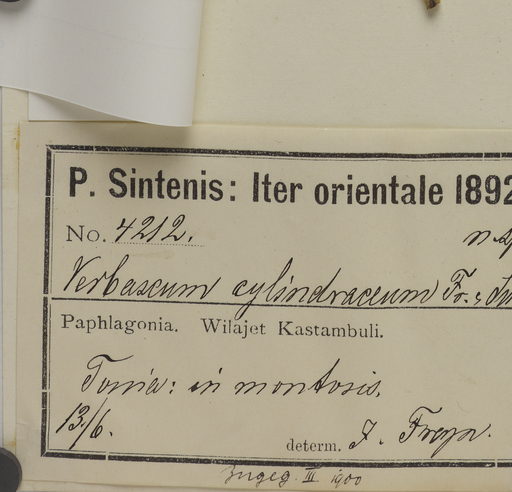 P. Sintenis: Iter orientale 1892
No. 4212.
n. sp
Verbascum cylindraceum Fr. &
Paphlagonia. Wilajet Kastambuli.
Tossia: in montosis.
13/6.
determ. J. Freyn.
Zugeg. III 1900